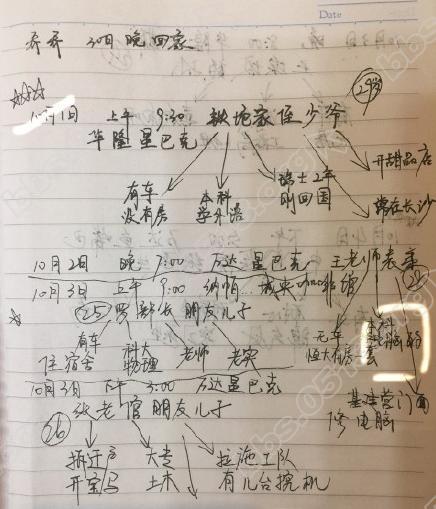 Date
乔乔 30日晚回家
☆☆☆
10月1日 上午 9:30 铁炮家侄少爷 29岁
华隆星巴克
有车
没有房
本科
学外语
瑞士2年
刚回国
开甜品店
常在长沙
10月2日 晚 7:00 万达星巴克 王老师表亲 28
10月3日 上午 9:00 纳帕
25 罗部长朋友儿子
有车
住宿舍
科大
物理
老师
老实
无车
恒大有房一套
本科
电脑
基建营门面
修电脑
10月3日 下午 3:00 万达星巴克
张老官朋友儿子
26
拆迁户
开宝马
大专
土木
拉施工队
有几台挖机
bbs.05